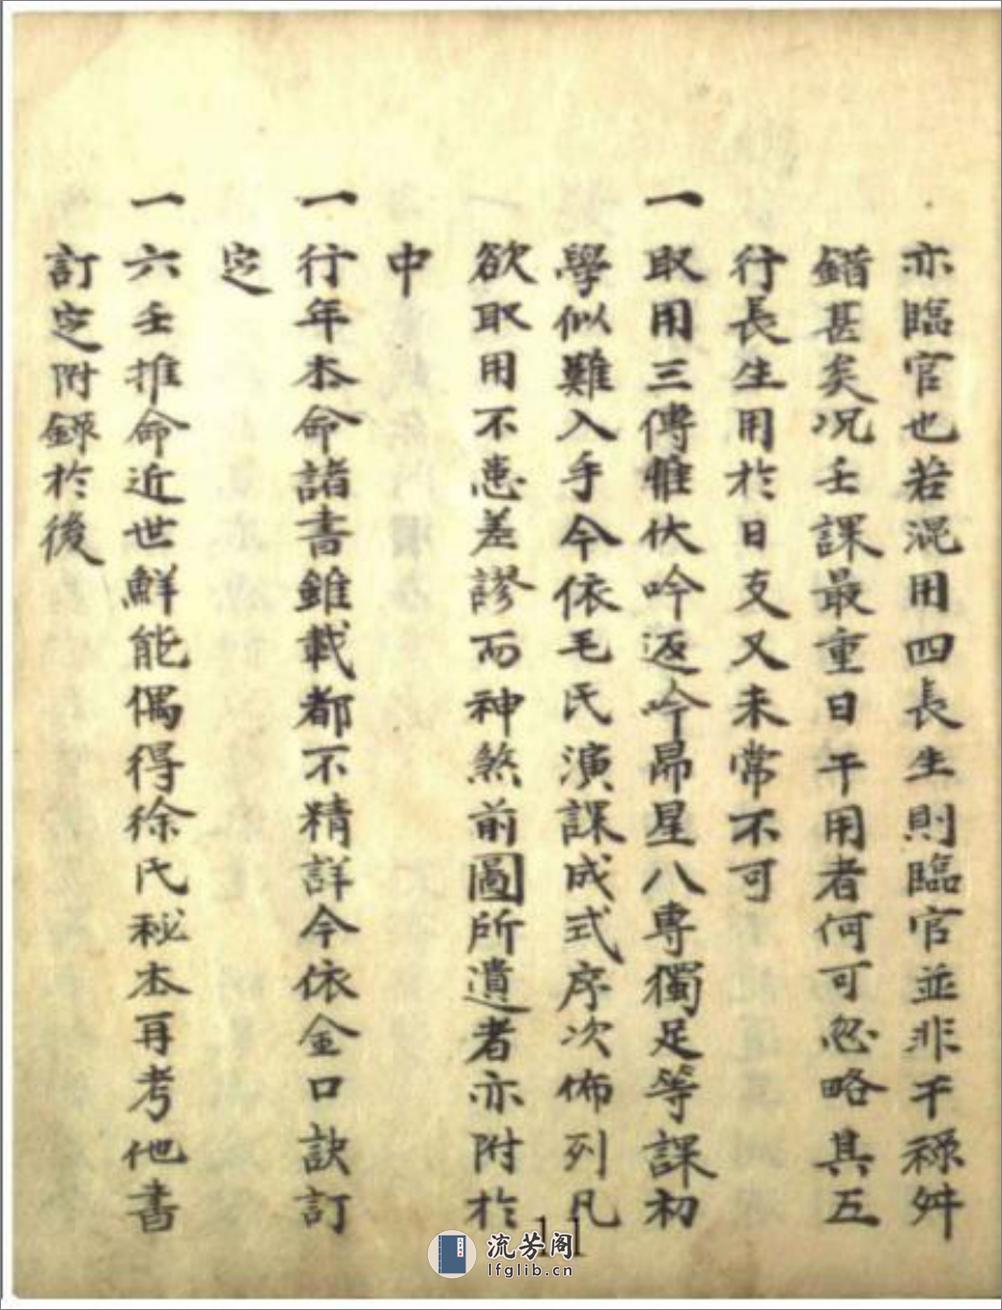 亦臨官也若混用四長生則臨官並非干祿舛
錯甚矣况壬課最重日干用者何可忽略其五
行長生用於日支又未常不可
一取用三傳惟伏吟返吟昴星八專獨足等課初
學似難入手今依毛氏演課成式序次佈列凡
欲取用不患差謬而神煞前圖所遺者亦附於
中
一行年本命諸書雖載都不精詳今依金口訣訂
定
一六壬推命近世鮮能偶得徐氏秘本再考他書
訂定附錄於後
11
流芳阁
lfglib.cn